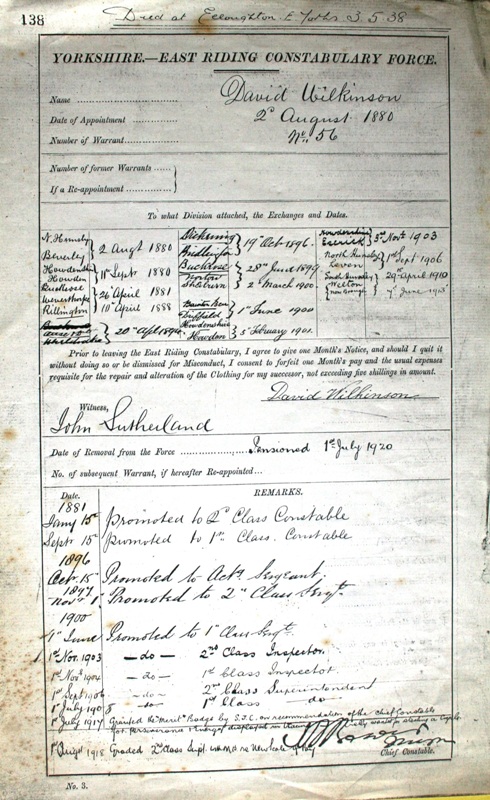 138
Died at Elloughton E. Yorks 3.5.38
YORKSHIRE.—EAST RIDING CONSTABULARY FORCE.
Name David Wilkinson
Date of Appointment 2d August 1880
Number of Warrant No. 56
Number of former Warrants
If a Re-appointment
To what Division attached, the Exchanges and Dates.
Beverley 2 Augt 1880
Howdenshire
Howden Sept 1880
Buckrose
Weaverthorpe 26 April 1881
Rillington 10 April 1888
20 Apl
Dickering
Bridlington 19th Oct 1896
Buckrose 28th June 1899
Norton 2 March 1900
Bainton Beacon
Driffield 1st June 1900
Howdenshire
Howden 5 February 1901
Howdenshire
Escrick 3rd Novr 1903
North Hunsley
Leven 1st Sept 1906
South Hunsley
Welton 29th April 1910
June
Prior to leaving the East Riding Constabulary, I agree to give one Month's Notice, and should I quit it
without doing so or be dismissed for Misconduct, I consent to forfeit one Month's pay and the usual expenses
requisite for the repair and alteration of the Clothing for my successor, not exceeding five shillings in amount.
David Wilkinson
Witness,
John Sutherland
Date of Removal from the Force Pensioned 1st July 1920
No. of subsequent Warrant, if hereafter Re-appointed...
Date. REMARKS.
1881
Jany 15th promoted to 2d Class Constable
Septr 15 promoted to 1st Class Constable
1896
Octr. 15 Promoted to Actg Sergeant.
1897
Novr 1 Promoted to 2nd Class Sergt.
1900
1st June Promoted to 1st Class Sergt.
1st Nov. 1903 —do— 2nd Class Inspector.
1st Novr 1904 —do— 1st Class Inspector.
1st Sept 1906 —do— 2nd Class Superintendent
1st July 1908 do— 1st Class —do—
1st July 1917 Granted the "merit" Badge by S.J.C. on recommendation of the Chief Constable
for Perseverance & energy displayed in
1st Augst 1918 Graded 2nd class Supt. new scale of pay
Chief Constable.
No. 3.